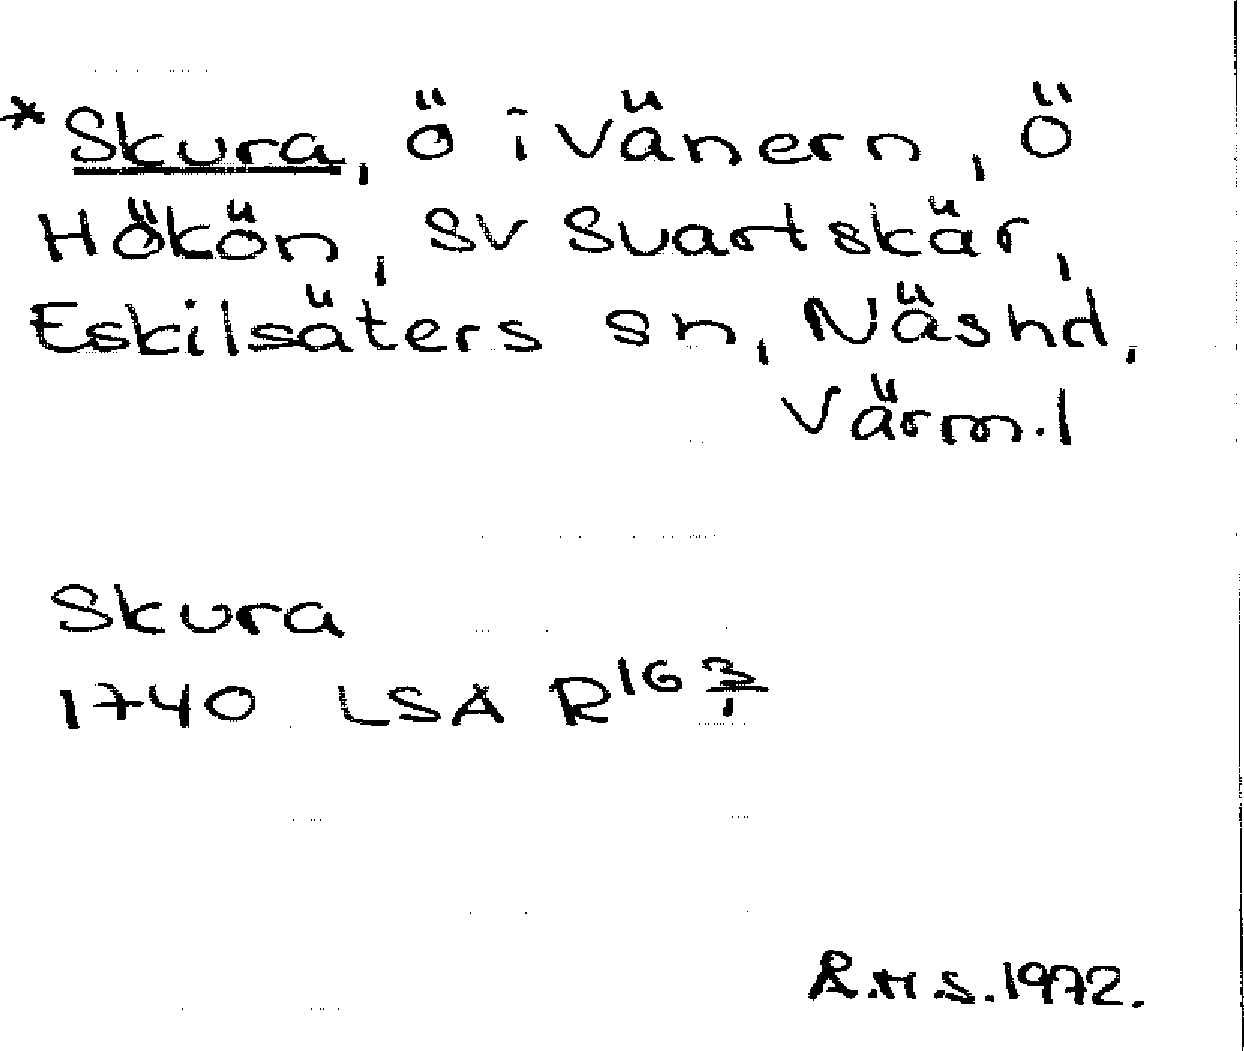 *Skura, ö i Vänern, Ö
Hökön, SV Svartskär,
Eskilsäters sn, Näshd,
Värml
Skura
1740 LSA R16 3/1
R.H.S. 1972.